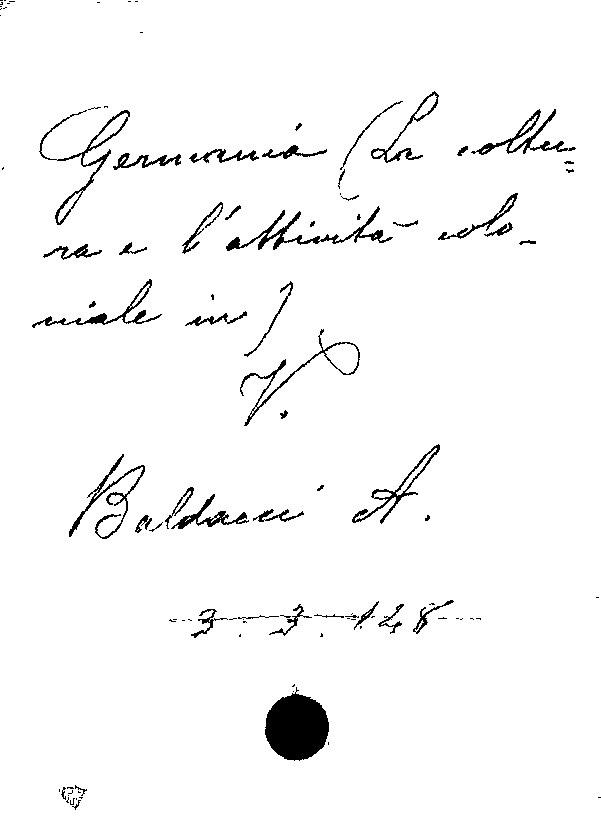 Germania (La coltu=
ra e l'attività colo-
niale in)
V.
Baldacci A.
3. 3. 128